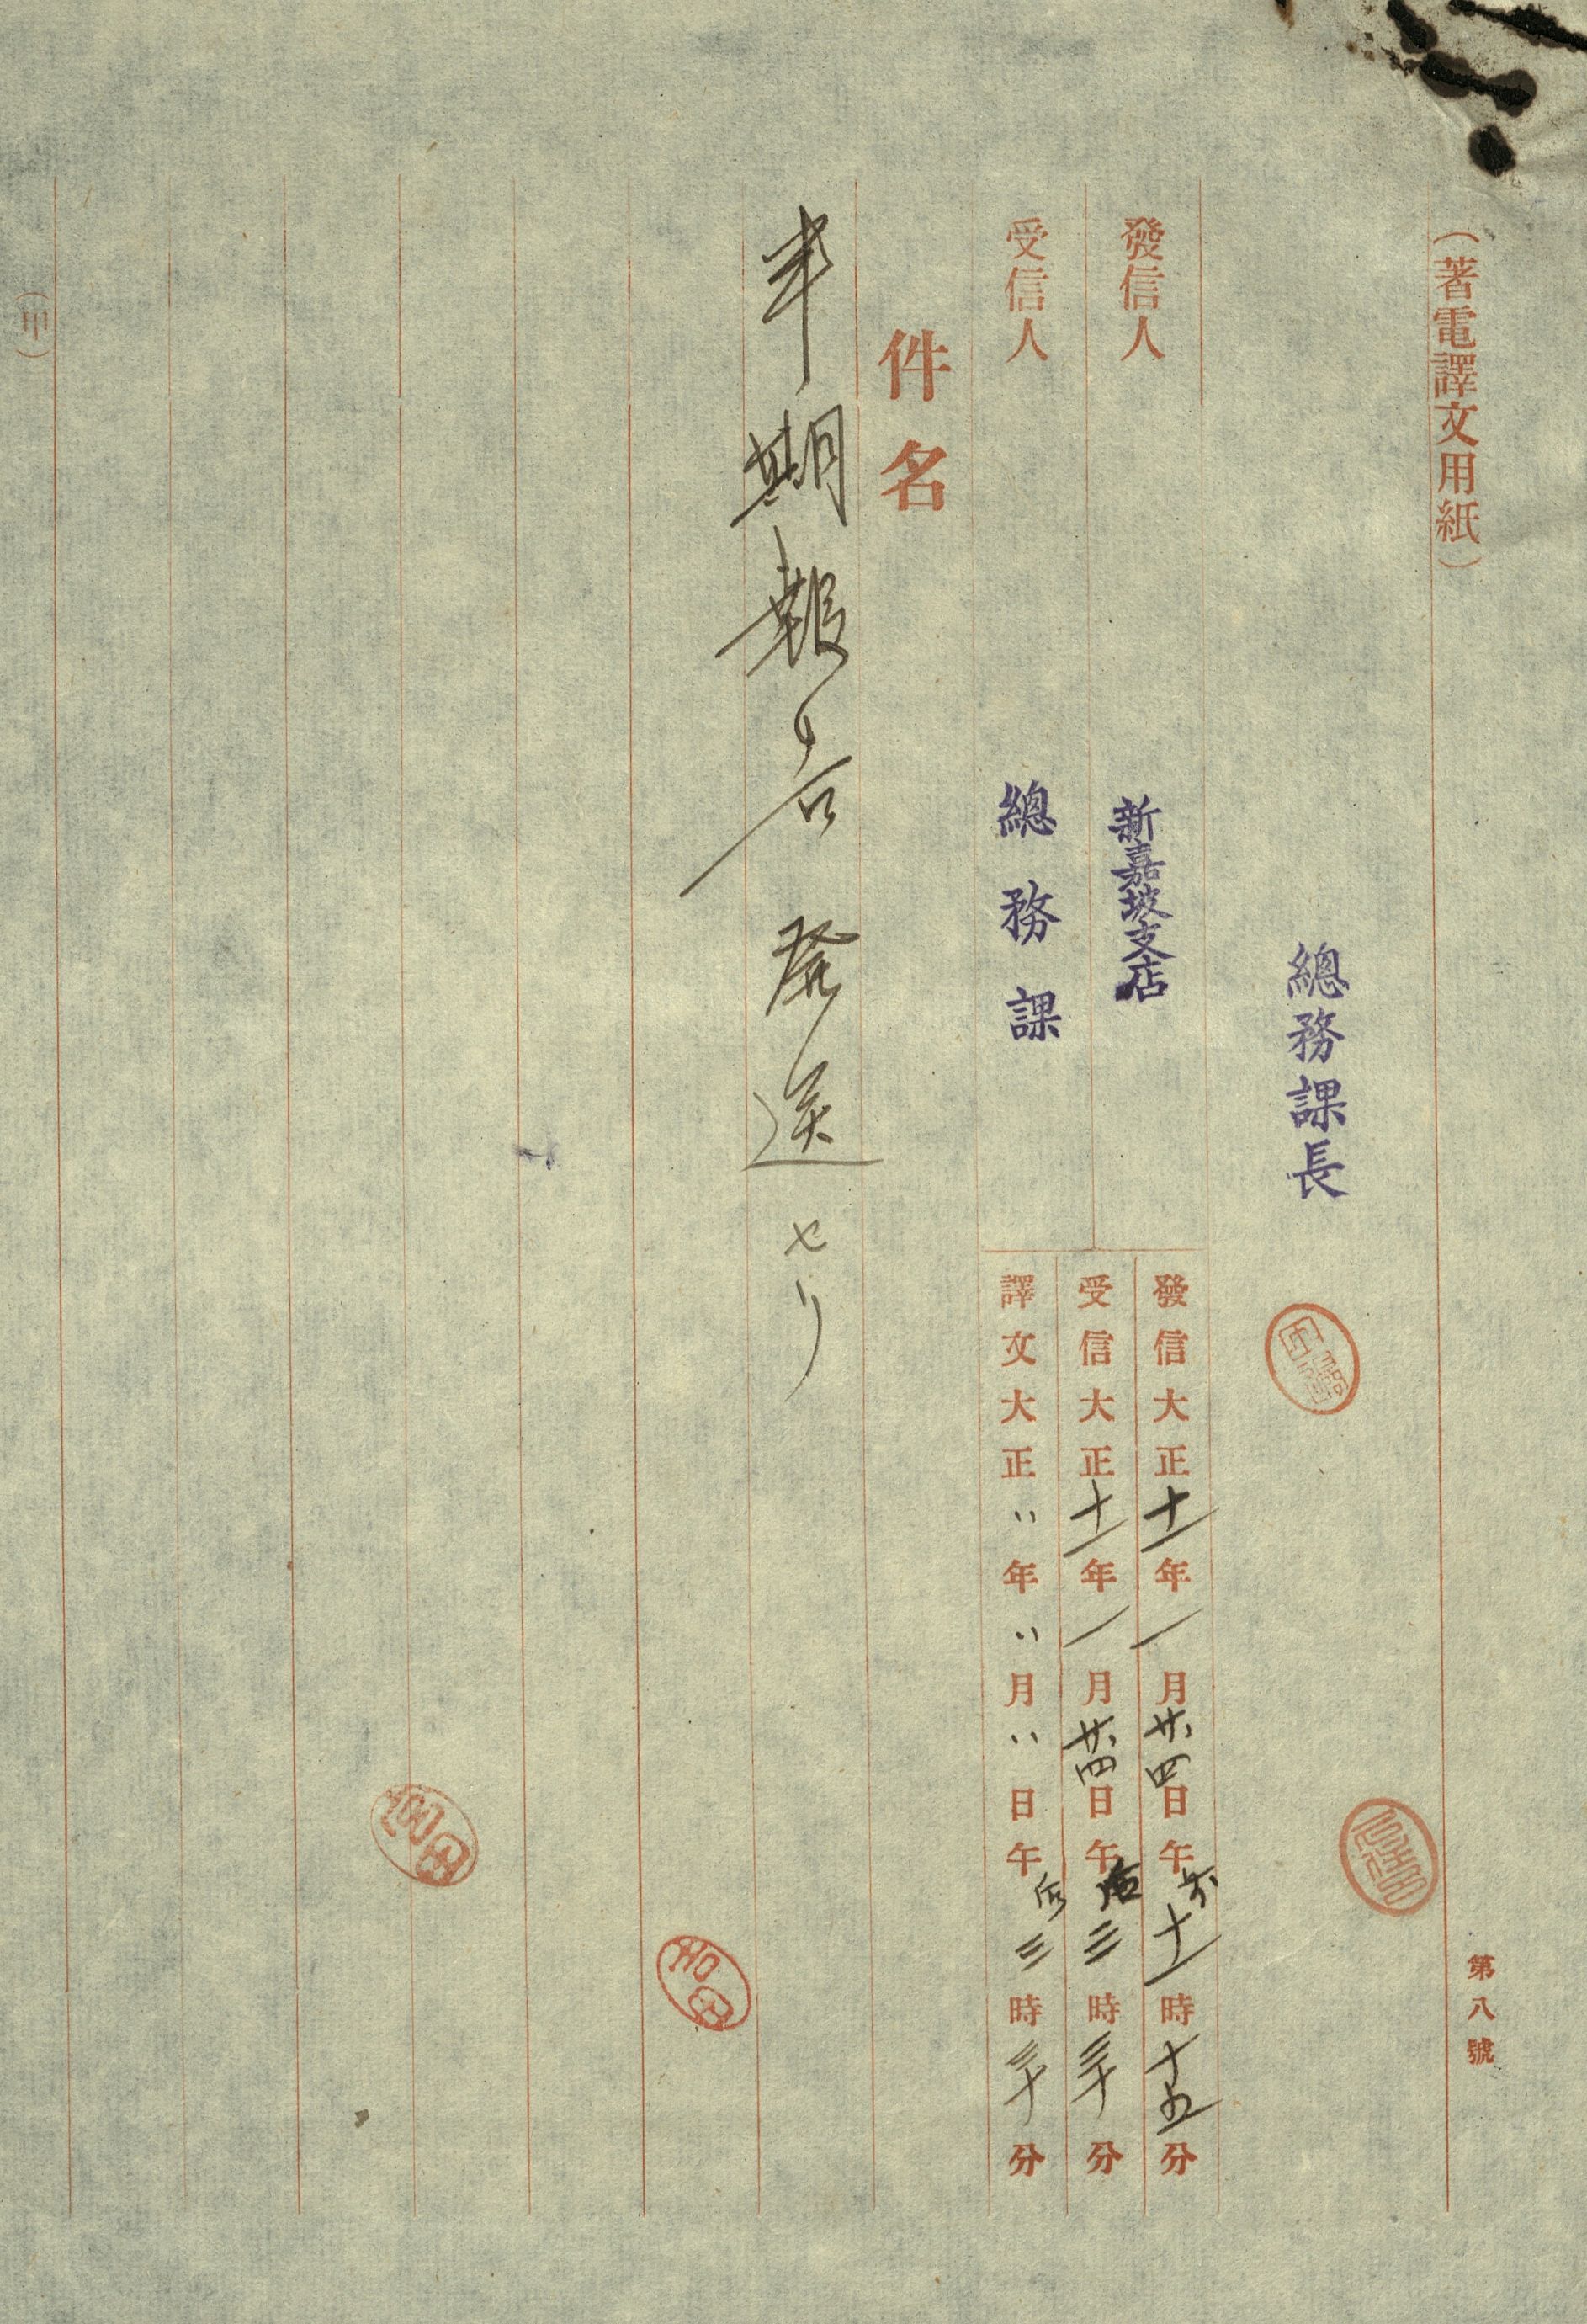 (著電譯文用紙)
第八號
總務課長
發信人 新嘉坡支店
發信大正十一年一月廿四日午前十一時十五分
受信大正十一年一月廿四日午后三時三十分
受信人 總務課
譯文大正〃年〃月〃日午后三時三十分
件名
半期報告発送セリ
(甲)